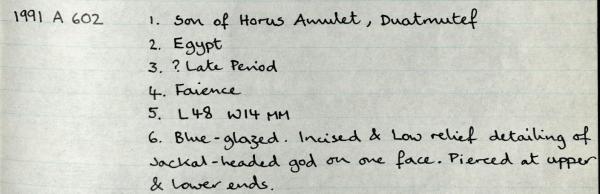 1991 A 602 1. Son of Horus Amulet, Duatmutef
2. Egypt
3. ? Late Period
4. Faience
5. L48 W14 MM
6. Blue-glazed. Incised & Low relief detailing of
Jackal-headed god on one face. Pierced at upper
& Lower ends.